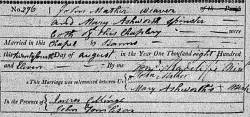 No. 296 John Mather Weaver
and Mary Ashworth Spinster
both of this Chapelry
Married in this Chapel by Banns
this twenty fourth Day of August in the Year One Thousand eight Hundred
and Eleven By me
This Marriage was solemnized between us John Mather
Mary Ashworth's Mark
In the Presence of James Collinge
John